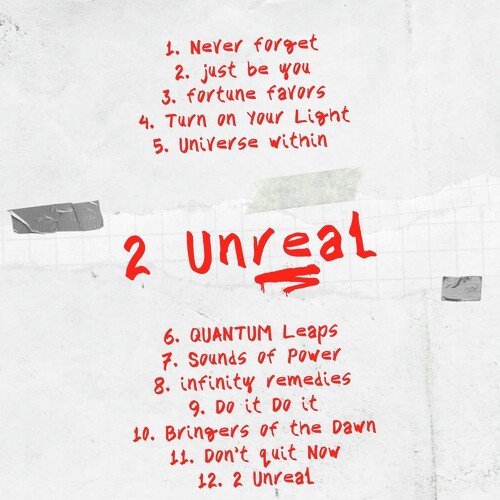 1. Never forget
2. just be you
3. fortune favors
4. Turn on Your Light
5. Universe within
2 Unreal
6. QUANTUM Leaps
7. Sounds of Power
8. infinity remedies
9. Do it Do it
10. Bringers of the Dawn
11. Don't quit Now
12. 2 Unreal